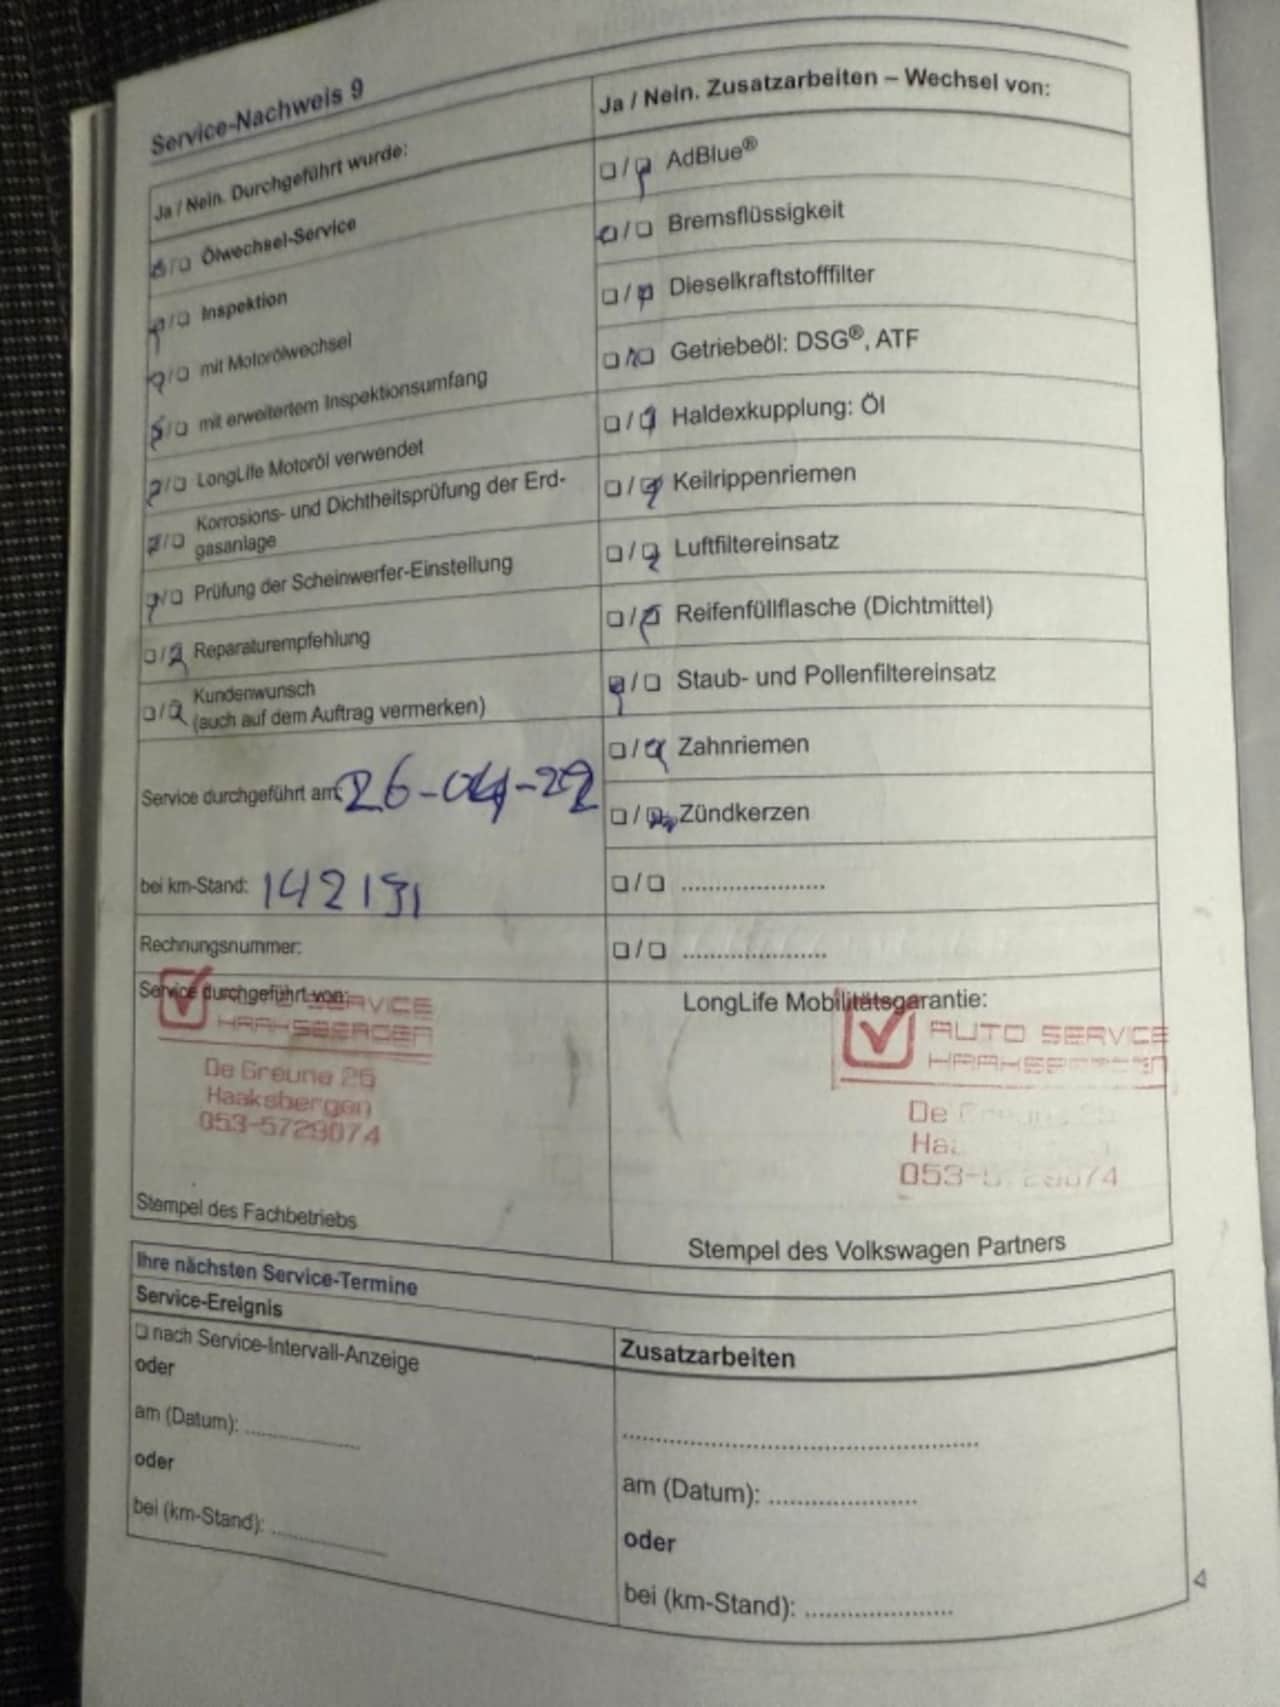 Service-Nachweis 9
Ja / Nein. Durchgeführt wurde:
❏/❏ Ölwechsel-Service
❏/❏ Inspektion
❏/❏ mit Motorölwechsel
❏/❏ mit erweitertem Inspektionsumfang
❏/❏ LongLife Motoröl verwendet
❏/❏ Korrosions- und Dichtheitsprüfung der Erd-
gasanlage
❏/❏ Prüfung der Scheinwerfer-Einstellung
❏/❏ Reparaturempfehlung
❏/❏ Kundenwunsch
(auch auf dem Auftrag vermerken)
Service durchgeführt am: 26-04-22
bei km-Stand: 142131
Rechnungsnummer:
Service durchgeführt von:
SERVICE
HAAKSBERGEN
De Greune 26
Haaksbergen
053-5729074
Stempel des Fachbetriebs
Ja / Nein. Zusatzarbeiten – Wechsel von:
❏/❏ AdBlue®
❏/❏ Bremsflüssigkeit
❏/❏ Dieselkraftstofffilter
❏/❏ Getriebeöl: DSG®, ATF
❏/❏ Haldexkupplung: Öl
❏/❏ Keilrippenriemen
❏/❏ Luftfiltereinsatz
❏/❏ Reifenfüllflasche (Dichtmittel)
❏/❏ Staub- und Pollenfiltereinsatz
❏/❏ Zahnriemen
❏/❏ Zündkerzen
❏/❏ ......................
❏/❏ ......................
LongLife Mobilitätsgarantie:
AUTO SERVICE
De
053-
Stempel des Volkswagen Partners
Ihre nächsten Service-Termine
Service-Ereignis
❏ nach Service-Intervall-Anzeige
oder
am (Datum): ..................
oder
bei (km-Stand): ..................
Zusatzarbeiten
......................................................
am (Datum): ......................
oder
bei (km-Stand): ......................